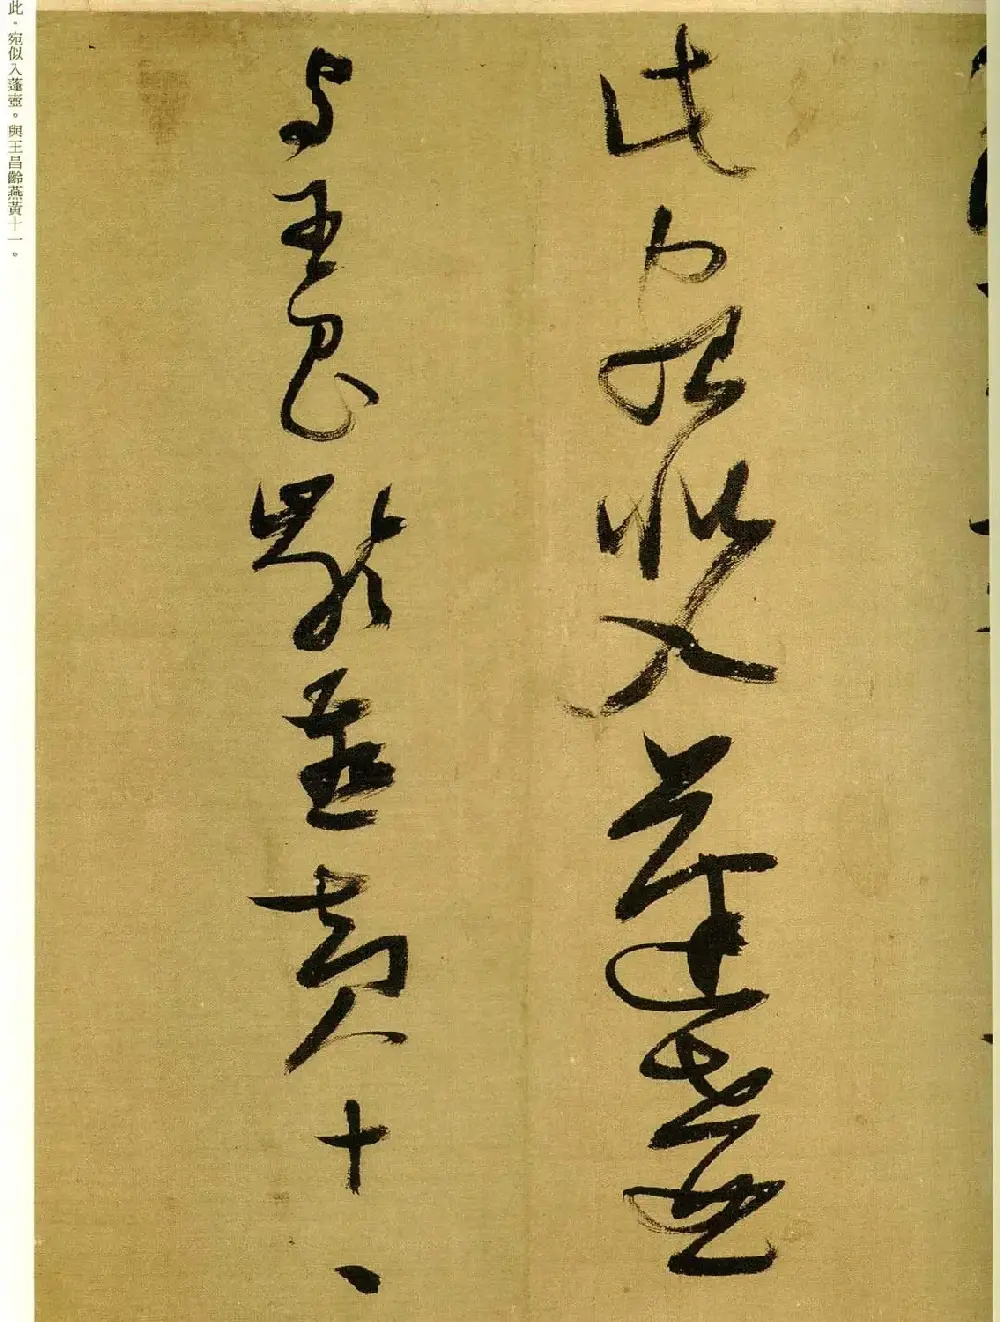 此宛似入蓬壺
与王昌齡燕黃十一
此。宛似入蓬壺。與王昌齡燕黃十一。